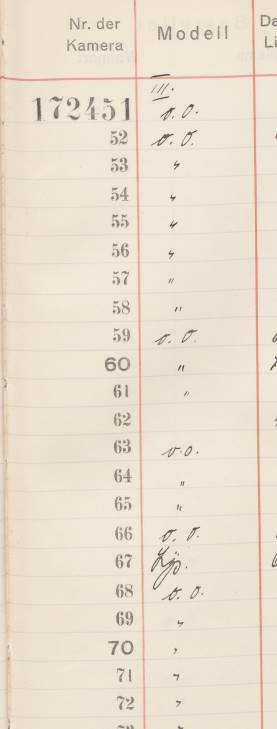 Nr. der Kamera Modell Da Li
III.
172451 v. o.
52 v. o.
53 "
54 "
55 "
56 "
57 "
58 "
59 v. o.
60 "
61 "
62
63 v. o.
64 "
65 "
66 v. o.
67
68 v. o.
69 "
70 "
71 "
72 "